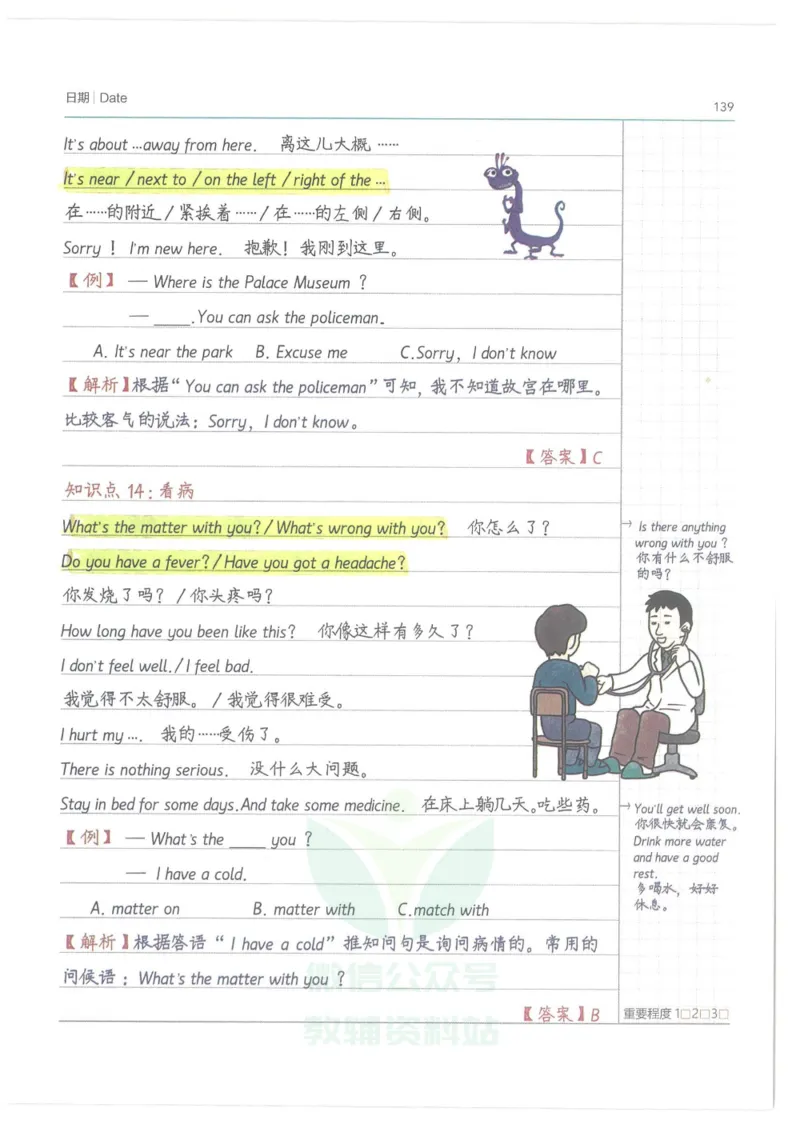 日期 | Date
139
It's about …away from here. 离这儿大概……
It's near / next to / on the left / right of the …
在……的附近 / 紧挨着…… / 在……的左侧 / 右侧。
Sorry ! I'm new here. 抱歉! 我刚到这里。
【例】 — Where is the Palace Museum ?
— ____.You can ask the policeman.
A. It's near the park B. Excuse me C.Sorry, I don't know
【解析】根据“ You can ask the policeman”可知, 我不知道故宫在哪里。
比较客气的说法: Sorry, I don't know。
【答案】C
知识点 14 : 看病
What's the matter with you? / What's wrong with you? 你怎么了?
Do you have a fever? / Have you got a headache?
你发烧了吗? / 你头疼吗?
How long have you been like this? 你像这样有多久了?
I don't feel well. / I feel bad.
我觉得不太舒服。 / 我觉得很难受。
I hurt my …. 我的……受伤了。
There is nothing serious. 没什么大问题。
Stay in bed for some days.And take some medicine. 在床上躺几天。吃些药。
【例】 — What's the ____ you ?
— I have a cold.
A. matter on B. matter with C.match with
【解析】根据答语“ I have a cold”推知问句是询问病情的。常用的
问候语 : What's the matter with you ?
【答案】B
→ Is there anything
wrong with you ?
你有什么不舒服
的吗?
→ You'll get well soon.
你很快就会康复。
Drink more water
and have a good
rest.
多喝水, 好好
休息。
重要程度 1□2□3□
微信公众号
教辅资料站